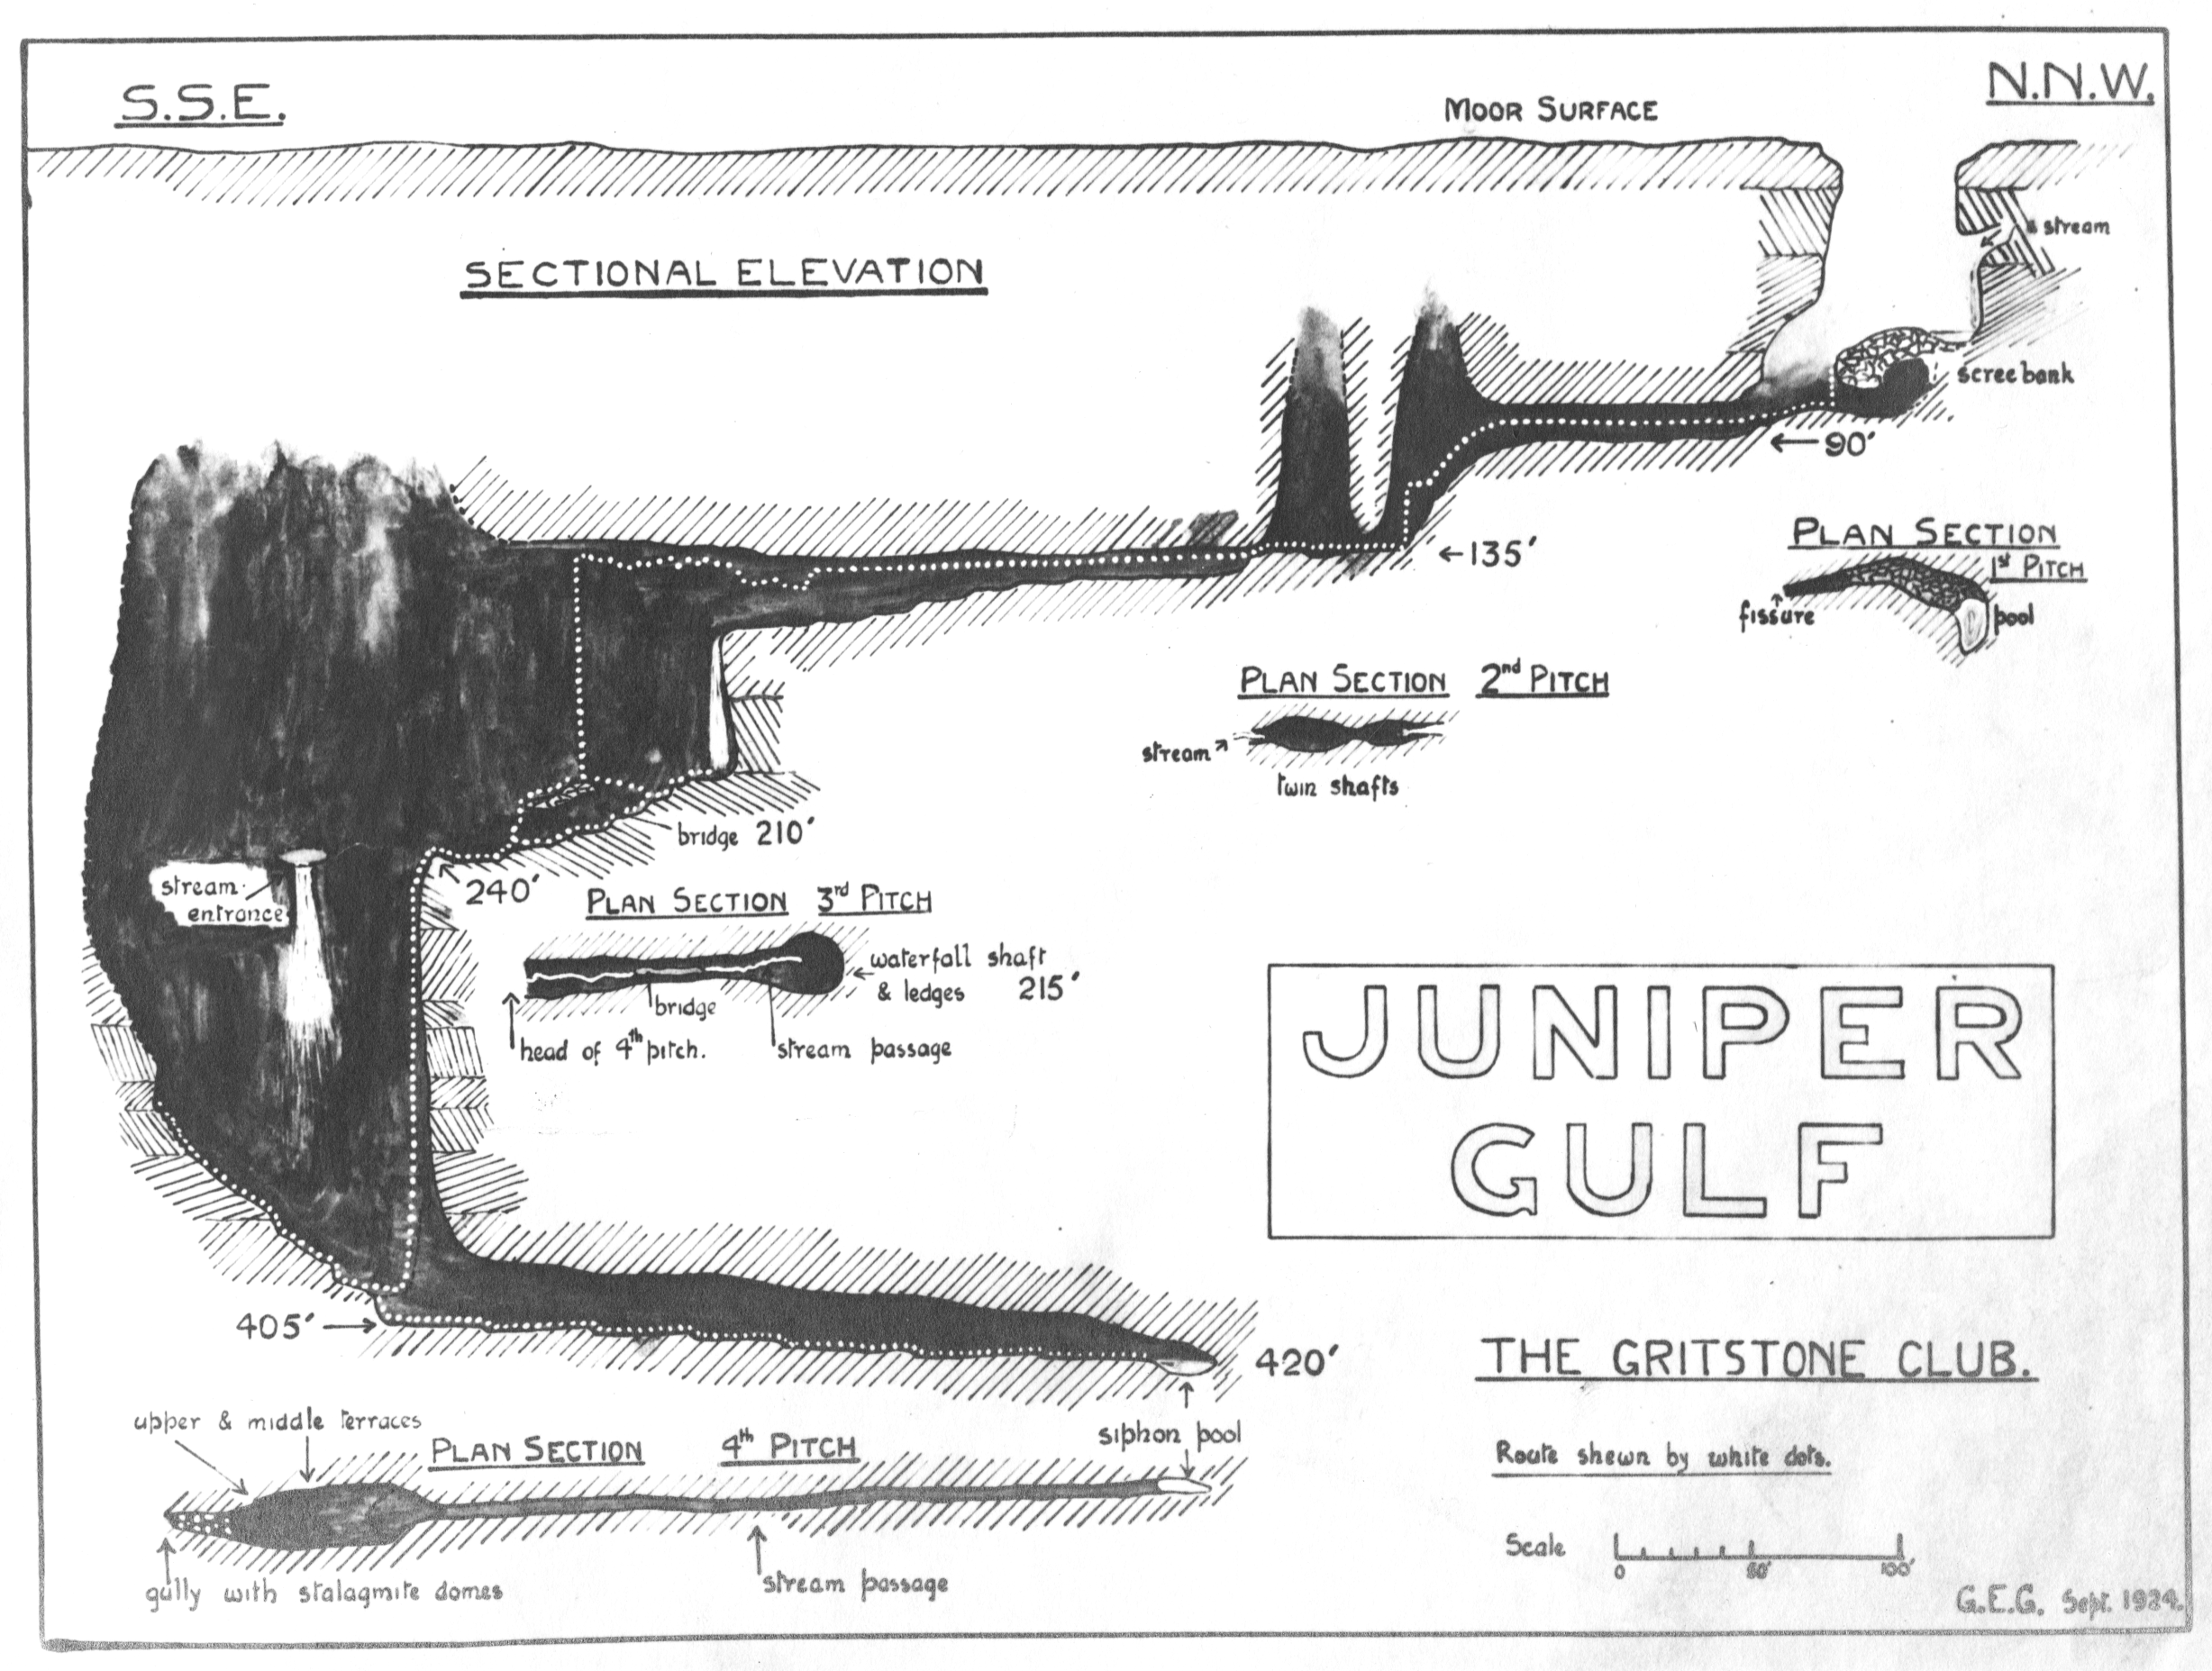 S.S.E.
N.N.W.
MOOR SURFACE
SECTIONAL ELEVATION
stream
scree bank
←90'
←135'
PLAN SECTION
1st PITCH
fissure
pool
PLAN SECTION 2nd PITCH
stream
twin shafts
bridge 210'
240'
stream
entrance
PLAN SECTION 3rd PITCH
waterfall shaft
& ledges 215'
bridge
head of 4th pitch.
stream passage
JUNIPER
GULF
405'
420'
THE GRITSTONE CLUB.
upper & middle terraces
PLAN SECTION 4th PITCH
siphon pool
gully with stalagmite domes
stream passage
Route shewn by white dots.
Scale
0 50' 100'
G.E.G. Sept. 1924.